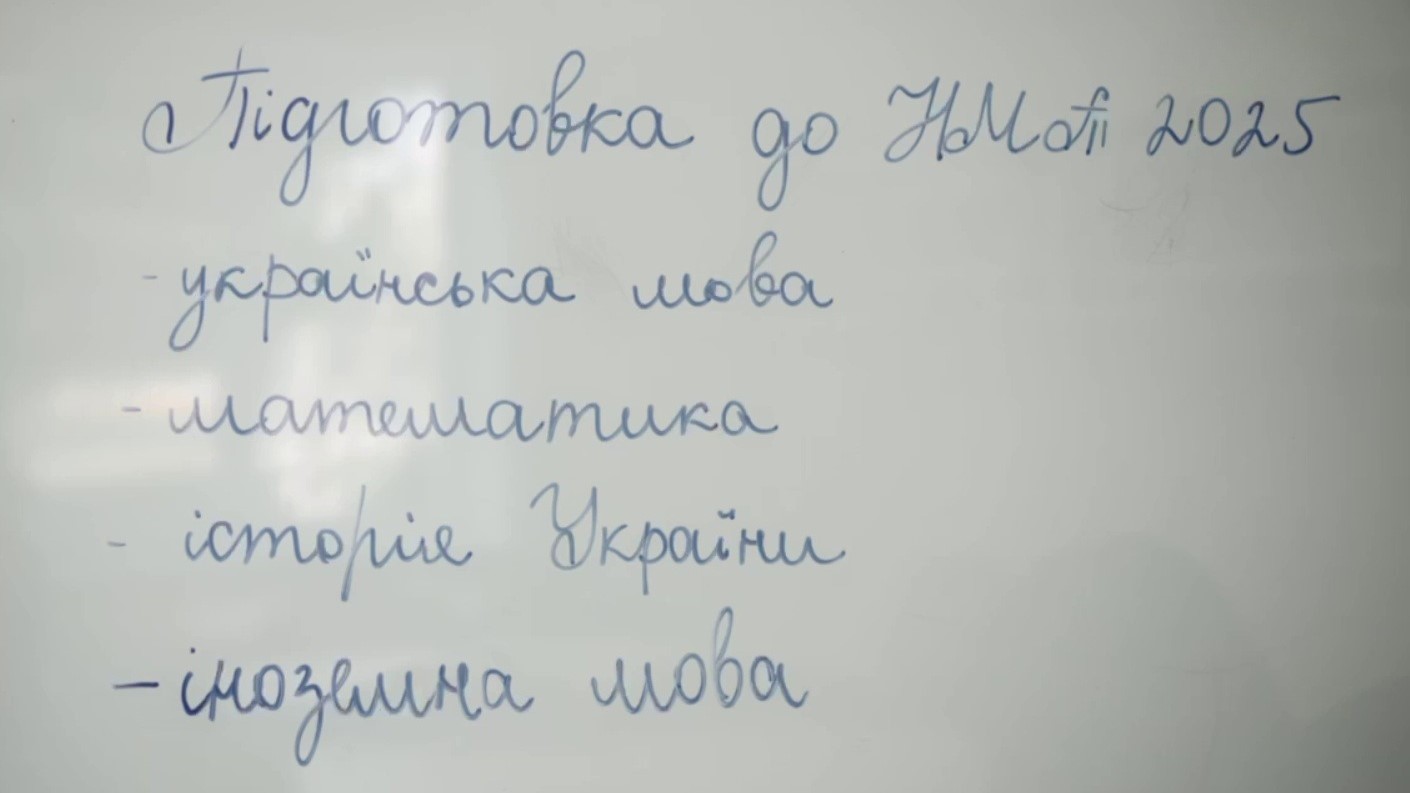 Підготовка до НМТ 2025
- українська мова
- математика
- історія України
- іноземна мова